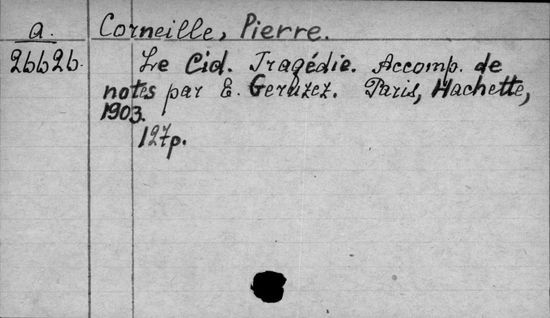 a. Corneille, Pierre.
26626. Le Cid. Tragédie. Accomp. de
notes par E. Geruzez. Paris, Hachette,
1903.
127p.